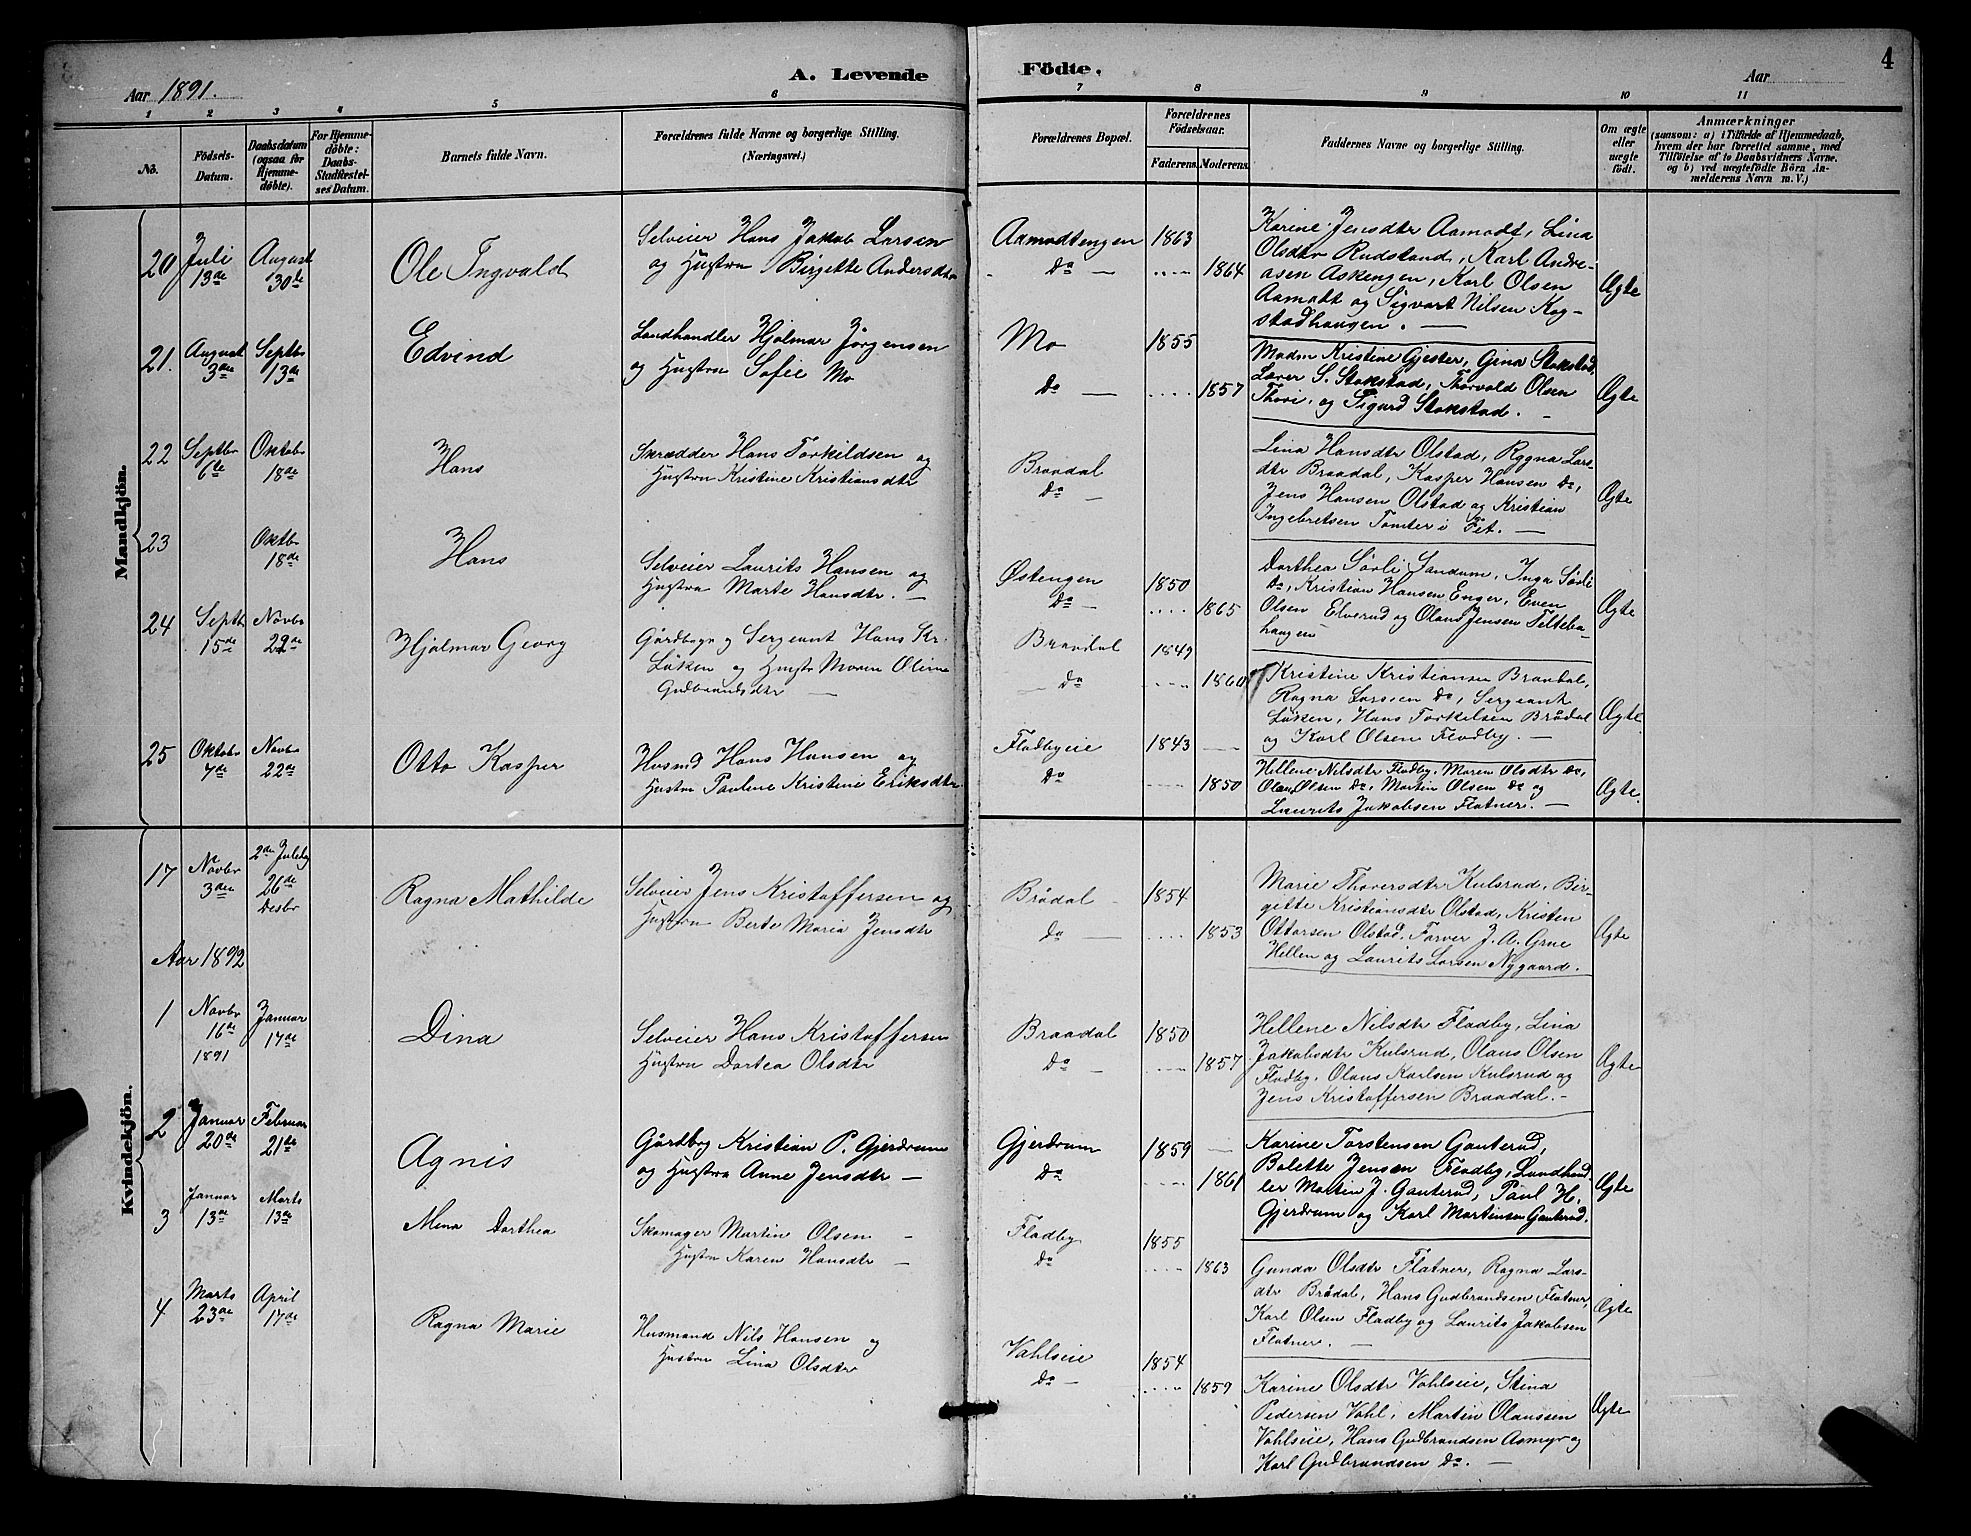 Aar 1891.
A. Levende
Födte.
Aar
4
1 2 3 4 5 6 7 8 9 10 11
No.
Födsels-
Datum.
Daabsdatum
(ogsaa for
Hjemme-
döbte).
For Hjemme-
döbte:
Daabs-
Stadfæstel-
ses Datum.
Barnets fulde Navn.
Forældrenes fulde Navne og borgerlige Stilling.
(Næringsvei.)
Forældrenes Bopæl.
Forældrenes
Födselsaar.
Faderens.
Moderens.
Faddernes Navne og borgerlige Stilling.
Om ægte
eller
uægte
födt.
Anmærkninger
(saasom: a) i Tilfælde af Hjemmedaab,
hvem der har forrettet samme, med
Tilföielse af to Daabsvidners Navne.
og b) ved uægtefödte Börn An-
melderens Navn m. V.)
Mandkjön.
20
Juli
13de
August
30te
Ole Ingvald
Selveier Hans Jakob Larsen
og Hustru Birgette Andersdtr
Aamodtengen
Do —
1863
1864
Karine Jensdtr Aamodt, Lina
Olsdtr Rudstand, Karl Andre-
asen Askengen, Karl Olsen
Aamodt og Sigvart Nilsen Kog-
stadhaugen. —
Ægte
21.
August
3die
Septbr
13de
Edvind
Landhandler Hjalmar Jørgensen
og Hustru Sofie Mo
Mo
Do —
1855
1857
Madm Kristine Gjester, Gina Stokstad,
Lærer S. Stokstad, Thorvald Olsen
Thori, og Sigurd Stokstad. —
Ægte
22
Septbr
6te
Oktobr
18de
Hans
Skrædder Hans Torkildsen og
Hustru Kristine Kristiansdtr
Braadal
Do —
Lina Hansdtr Olstad, Ragna Lars-
dtr Braadal, Kasper Hansen Do,
Jens Hansen Olstad og Kristian
Ingebretsen Tomter i Fet. —
Ægte
23
Oktbr
18de
Hans
Selveier Laurits Hansen og
Hustru Marte Hansdtr. —
Østengen
Do —
1850
1865
Dorthea Sørli Sandum, Inga Sørli
Do, Kristian Hansen Enger, Even
Olsen Elverud og Olaus Jensen Telteba-
haugen
Ægte
24
Septbr
15de
Novbr
22de
Hjalmar Georg
Gårdbogr og Sergeant Hans Kr.
Løken og Hustr Maren Oline
Gudbrandsdtr —
Braadal
— Do
1849
1860
Kristine Kristiansen Braadal,
Ragna Larsen Do, Sergeant
Løken, Hans Torkelsen Brådal
og Karl Olsen Fladby. —
Ægte
25
Oktobr
7de
Novbr
22de
Otto Kasper
Husmd Hans Hansen og
Hustru Pauline Kristine Eriksdtr
Fladbyeie
Do
1843
1850
Hellene Nilsdtr Fladby, Maren Olsdtr Do,
Olaus Olsen Do, Martin Olsen Do og
Laurits Jakobsen Flatner. —
Ægte.
Kvindekjön.
17
Novbr
3die
2den Juledg
26de
Desbr
Ragna Mathilde
Selveier Jens Kristoffersen og
Hustru Berte Maria Jensdtr
Brådal
Do —
1854
1853
Marie Thorersdtr Kulsrud, Bir-
gette Kristiansdtr Olstad, Kristen
Ottersen Olstad, Farver J. A. Grue
Hellen og Laurits Larsen Nygaard.
Ægte
Aar 1892
1
Novbr
16de
1891
Januar
17de
Dina
Selveier Hans Kristoffersen
Hustru Dortea Olsdtr
Braadal
Do —
1850
1857
Hellene Nilsdtr Fladby, Lina
Jakobsdtr Kulsrud, Olaus Olsen
Fladby, Olaus Karlsen Kulsrud og
Jens Kristoffersen Braadal. -
Ægte
2
Januar
20de
Februar
21de
Agnis
Gårdbog Kristian P. Gjerdrum
og Hustru Anne Jensdtr —
Gjerdrum
Do
1859
1861
Karine Torstensen Gauterud,
Bolette Jensen Fladby, Landhand-
ler Martin J. Gauterud, Paul H.
Gjerdrum og Karl Martinsen Gauterud.
Ægte
3
Januar
13de
Marts
13de
Mina Dorthea
Skomager Martin Olsen —
Hustru Karen Hansdtr —
Fladby
Do
1855
1863
Gunda Olsdtr Flatner, Ragna Lars-
dtr Brådal, Hans Gudbrandsen Flatner,
Karl Olsen Fladby og Laurits Jakobsen
Flatner. —
Ægte
4
Marts
23de
April
17de
Ragna Marie
Husmand Nils Hansen og
Hustru Lina Olsdtr
Vahlseie
Do —
1854
1859
Karine Olsdtr Vahlseie, Stina
Pedersen Vahl, Martin Olaussen
Vahlseie, Hans Gudbrandsen Aamyr og
Karl Gudbrandsen Do. —
Ægte